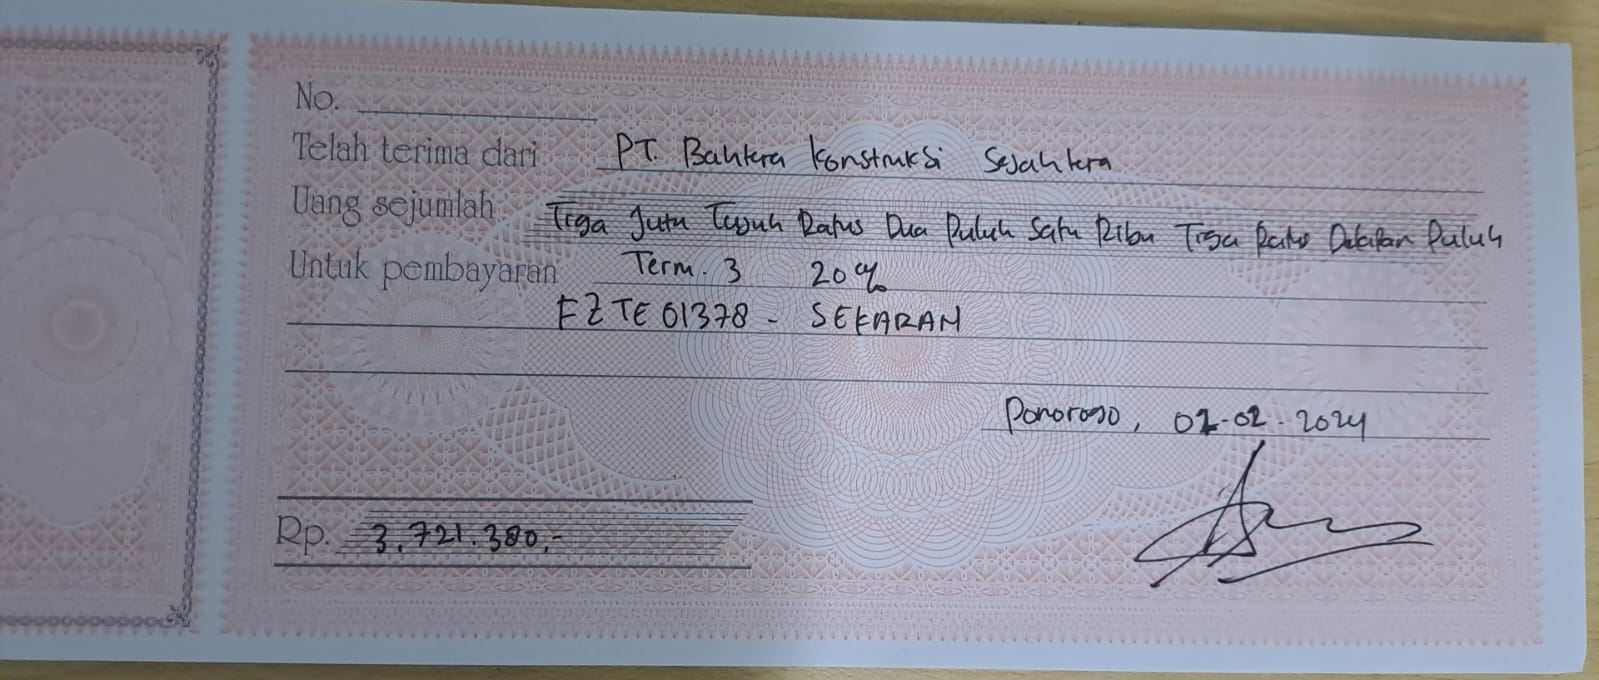 No.
Telah terima dari PT. Bahtera Konstruksi Sejahtera
Uang sejumlah Tiga Juta Tujuh Ratus Dua Puluh Satu Ribu Tiga Ratus Delapan Puluh
Untuk pembayaran Term. 3 20%
FZTE01378 - SEKARAN
Ponorogo, 02-02-2024
Rp. 3.721.380,-